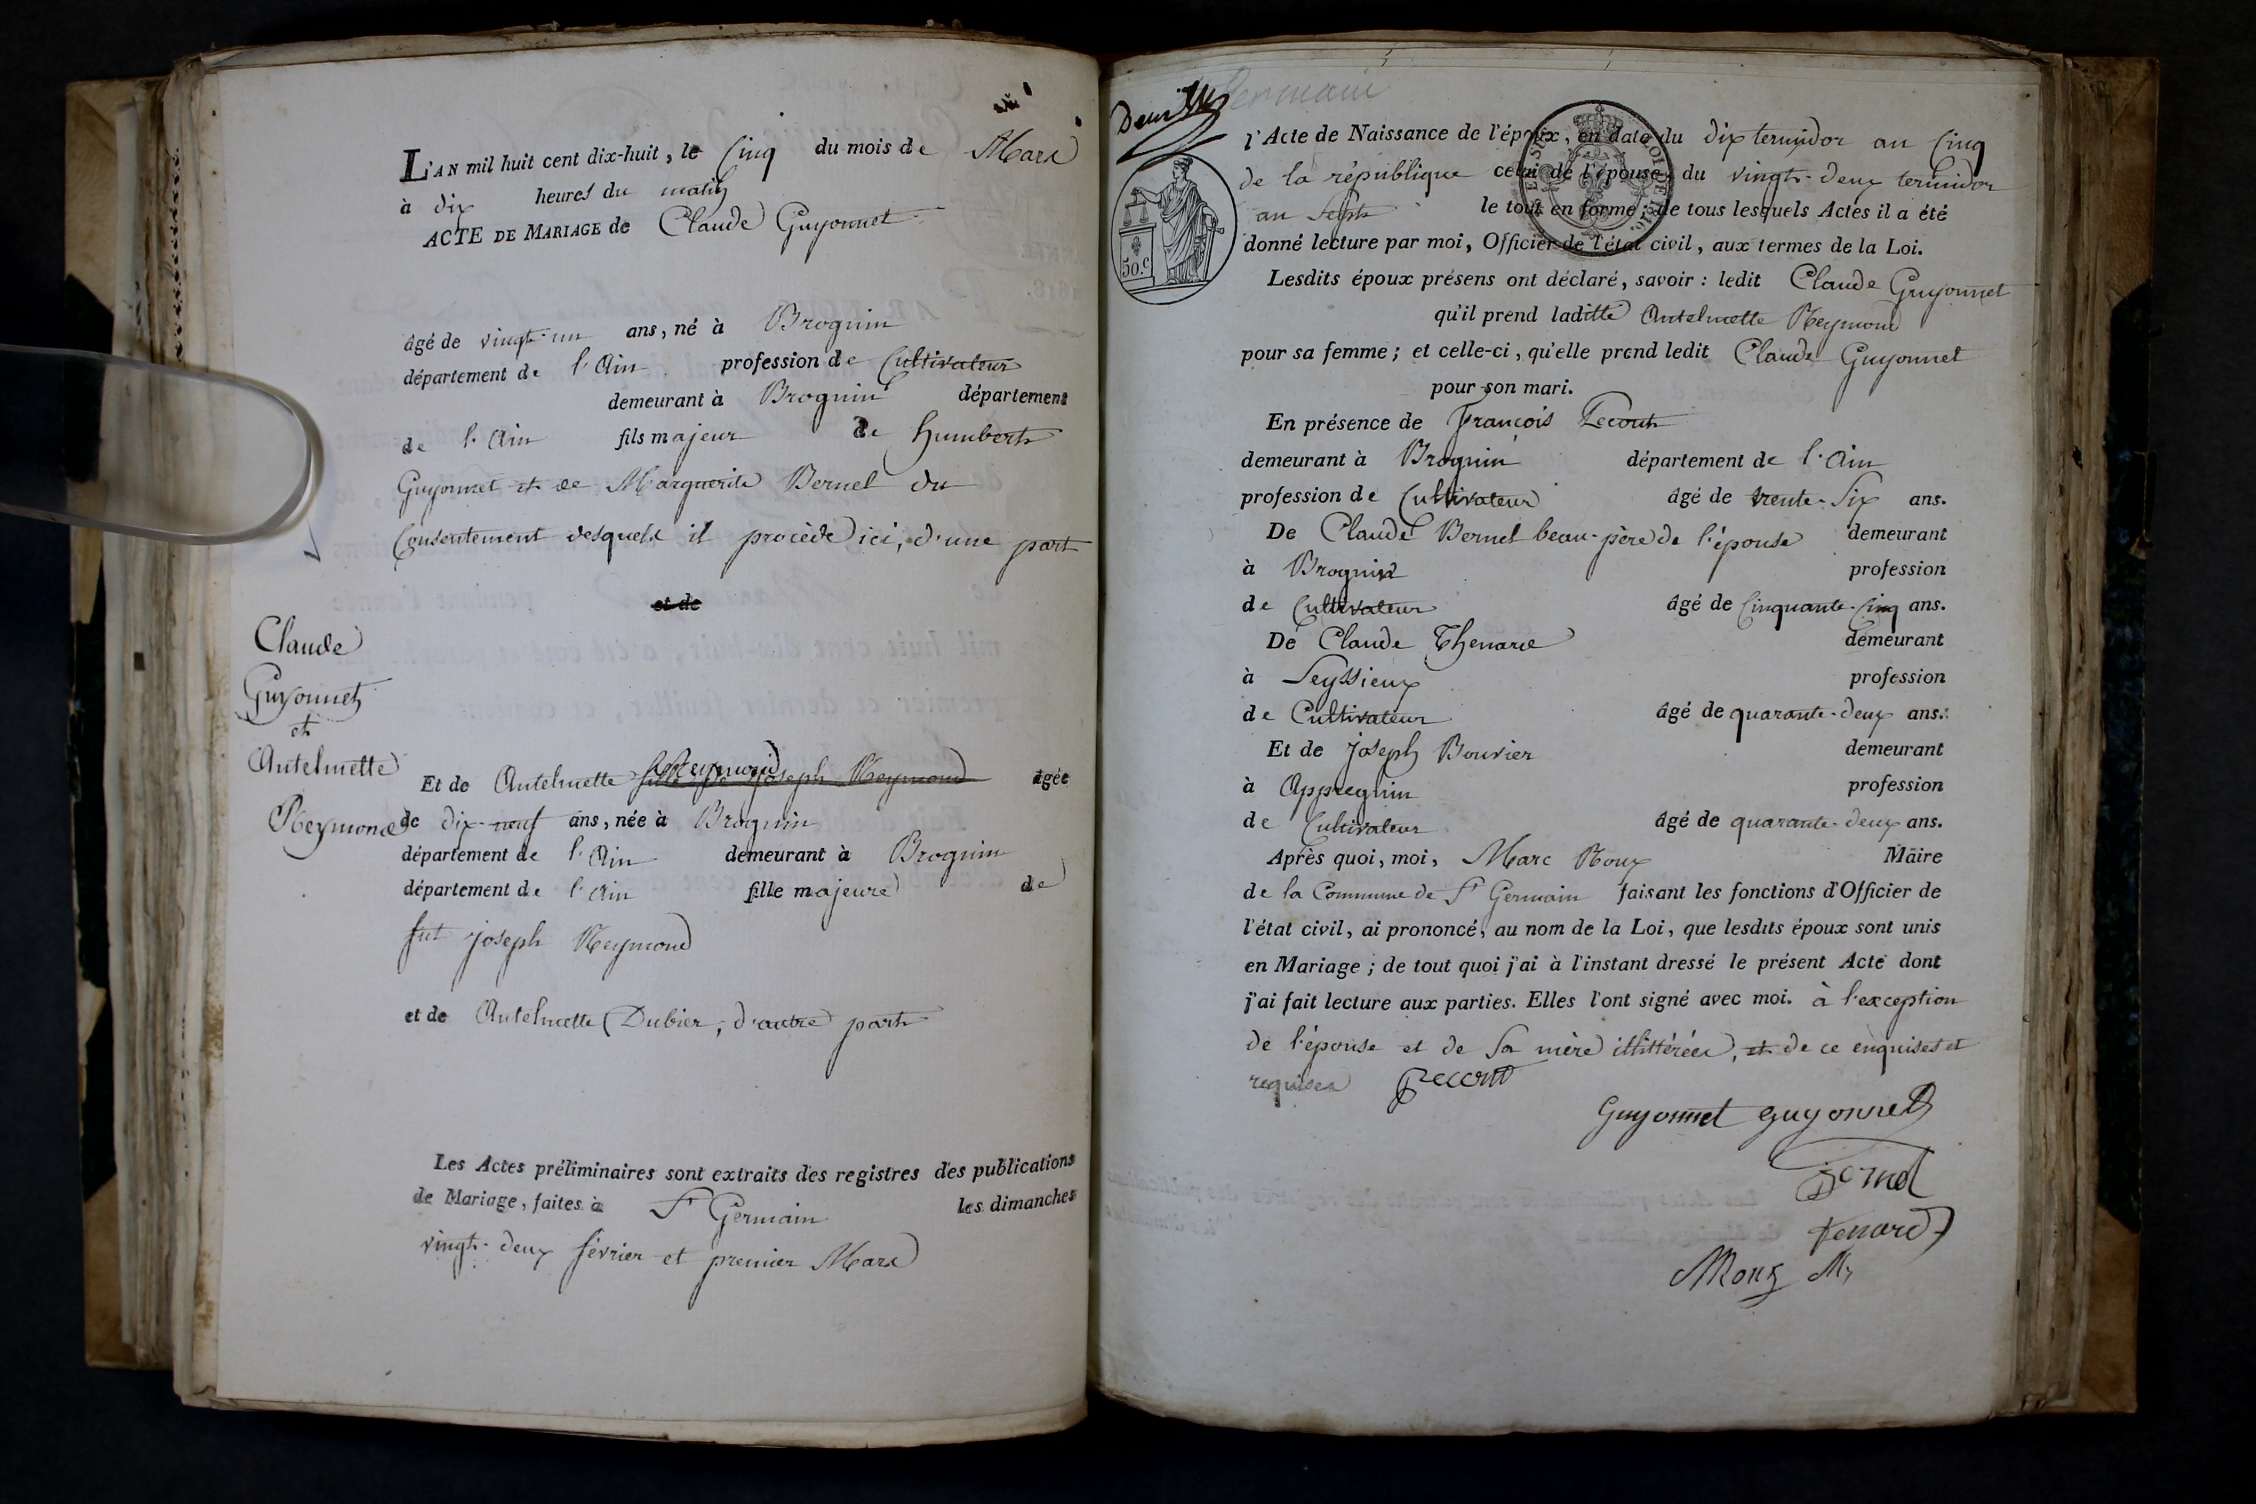 L'AN mil huit cent dix-huit, le Cinq du mois de Mars
à dix heures du matin
ACTE DE MARIAGE de Claude Guyonnet
âgé de vingt-un ans, né à Brognin
département de l'Ain profession de Cultivateur
demeurant à Brognin département
de l'Ain fils majeur de humbert
Guyonnet et de Marguerite Bernel du
Consentement desquels il procède ici, d'une part
et de
Claude
Guyonnet
et
Antelmette
Reymond
Reymond
Et de Antelmette fille de Joseph Reymond âgée
de dix-neuf ans, née à Brognin
département de l'Ain demeurant à Brognin
département de l'ain fille majeure de
fut Joseph Reymond
et de Antelmette Dubier, d'autre part
Les Actes préliminaires sont extraits des registres des publications
de Mariage, faites à St Germain les dimanches
vingt-deux février et premier Mars
Germain
l'Acte de Naissance de l'époux, en date du dix termidor an Cinq
de la république celui de l'épouse, du vingt-deux termidor
an Sept le tout en forme; de tous lesquels Actes il a été
donné lecture par moi, Officier de l'état civil, aux termes de la Loi.
50.c
Lesdits époux présens ont déclaré, savoir: ledit Claude Guyonnet
qu'il prend laditte Antelmette Reymond
pour sa femme; et celle-ci, qu'elle prend ledit Claude Guyonnet
pour son mari.
En présence de François Pecout
demeurant à Brognin département de l'Ain
profession de Cultivateur âgé de trente-Six ans.
De Claude Bernel beau-père de l'épouse demeurant
à Brognin profession
de Cultivateur âgé de Cinquante-Cinq ans.
De Claude Thenard demeurant
à Seyssieux profession
de Cultivateur âgé de quarante-deux ans.
Et de Joseph Bouvier demeurant
à Appregnin profession
de Cultivateur âgé de quarante-deux ans.
Après quoi, moi, Marc Roux Maire
de la Commune de St Germain faisant les fonctions d'Officier de
l'état civil, ai prononcé, au nom de la Loi, que lesdits époux sont unis
en Mariage; de tout quoi j'ai à l'instant dressé le présent Acte dont
j'ai fait lecture aux parties. Elles l'ont signé avec moi. à l'exception
de l'épouse et de Sa mère illittérées, et de ce enquises et
requises Pecout
Guyonnet guyonnet
Bernel
tenard